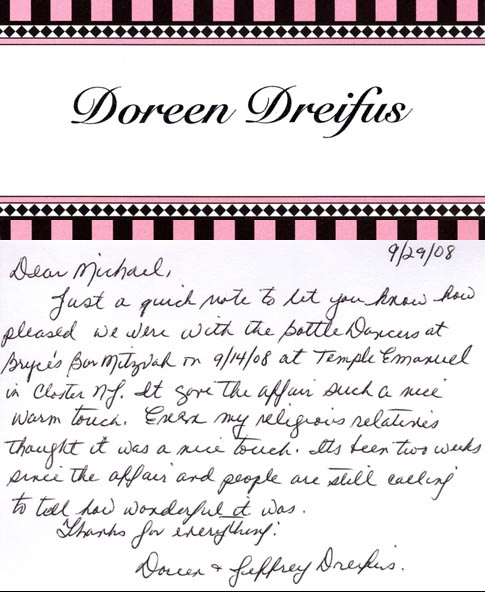 Doreen Dreifus
9/29/08
Dear Michael,
Just a quick note to let you know how
pleased we were with the Bottle Dancers at
Bryce's Bar Mitzvah on 9/14/08 at Temple Emanuel
in Closter NJ. It gave the affair such a nice
warm touch. Even my religious relatives
thought it was a nice touch. Its been two weeks
since the affair and people are still calling
to tell how wonderful it was.
Thanks for everything!
Doreen + Jeffrey Dreifus.